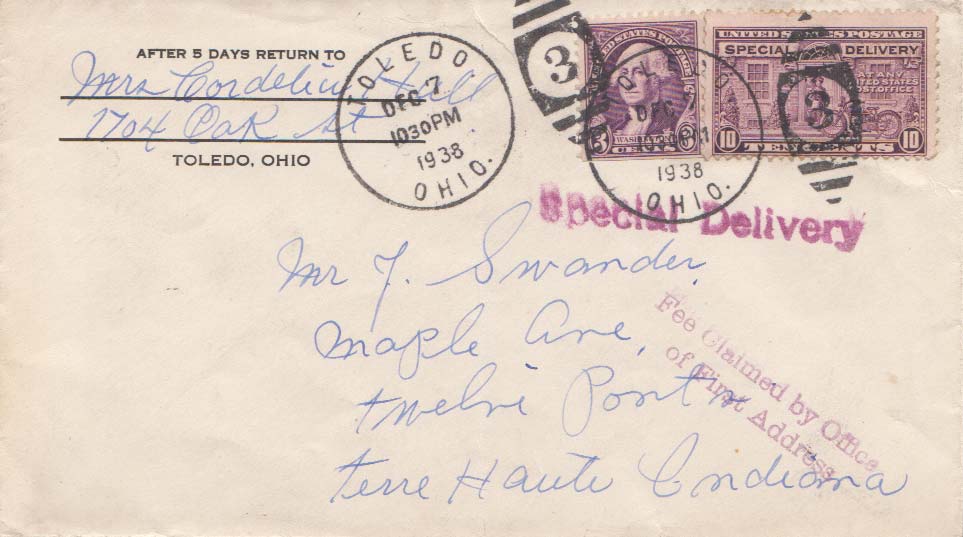 AFTER 5 DAYS RETURN TO
Mrs Cordelius Hill
1704 Oak St
TOLEDO, OHIO
TOLEDO
DEC 7
1030PM
1938
OHIO.
3
UNITED STATES POSTAGE
3 WASHINGTON 3
UNITED STATES POSTAGE
SPECIAL DELIVERY
AT ANY
UNITED STATES
POST OFFICE
10 TEN CENTS 10
3
TOLEDO
DEC 7
1938
OHIO.
Special Delivery
Mr J. Swander
Maple Ave,
twelve Points
terre Haute Indiana
Fee Claimed by Office
of First Address